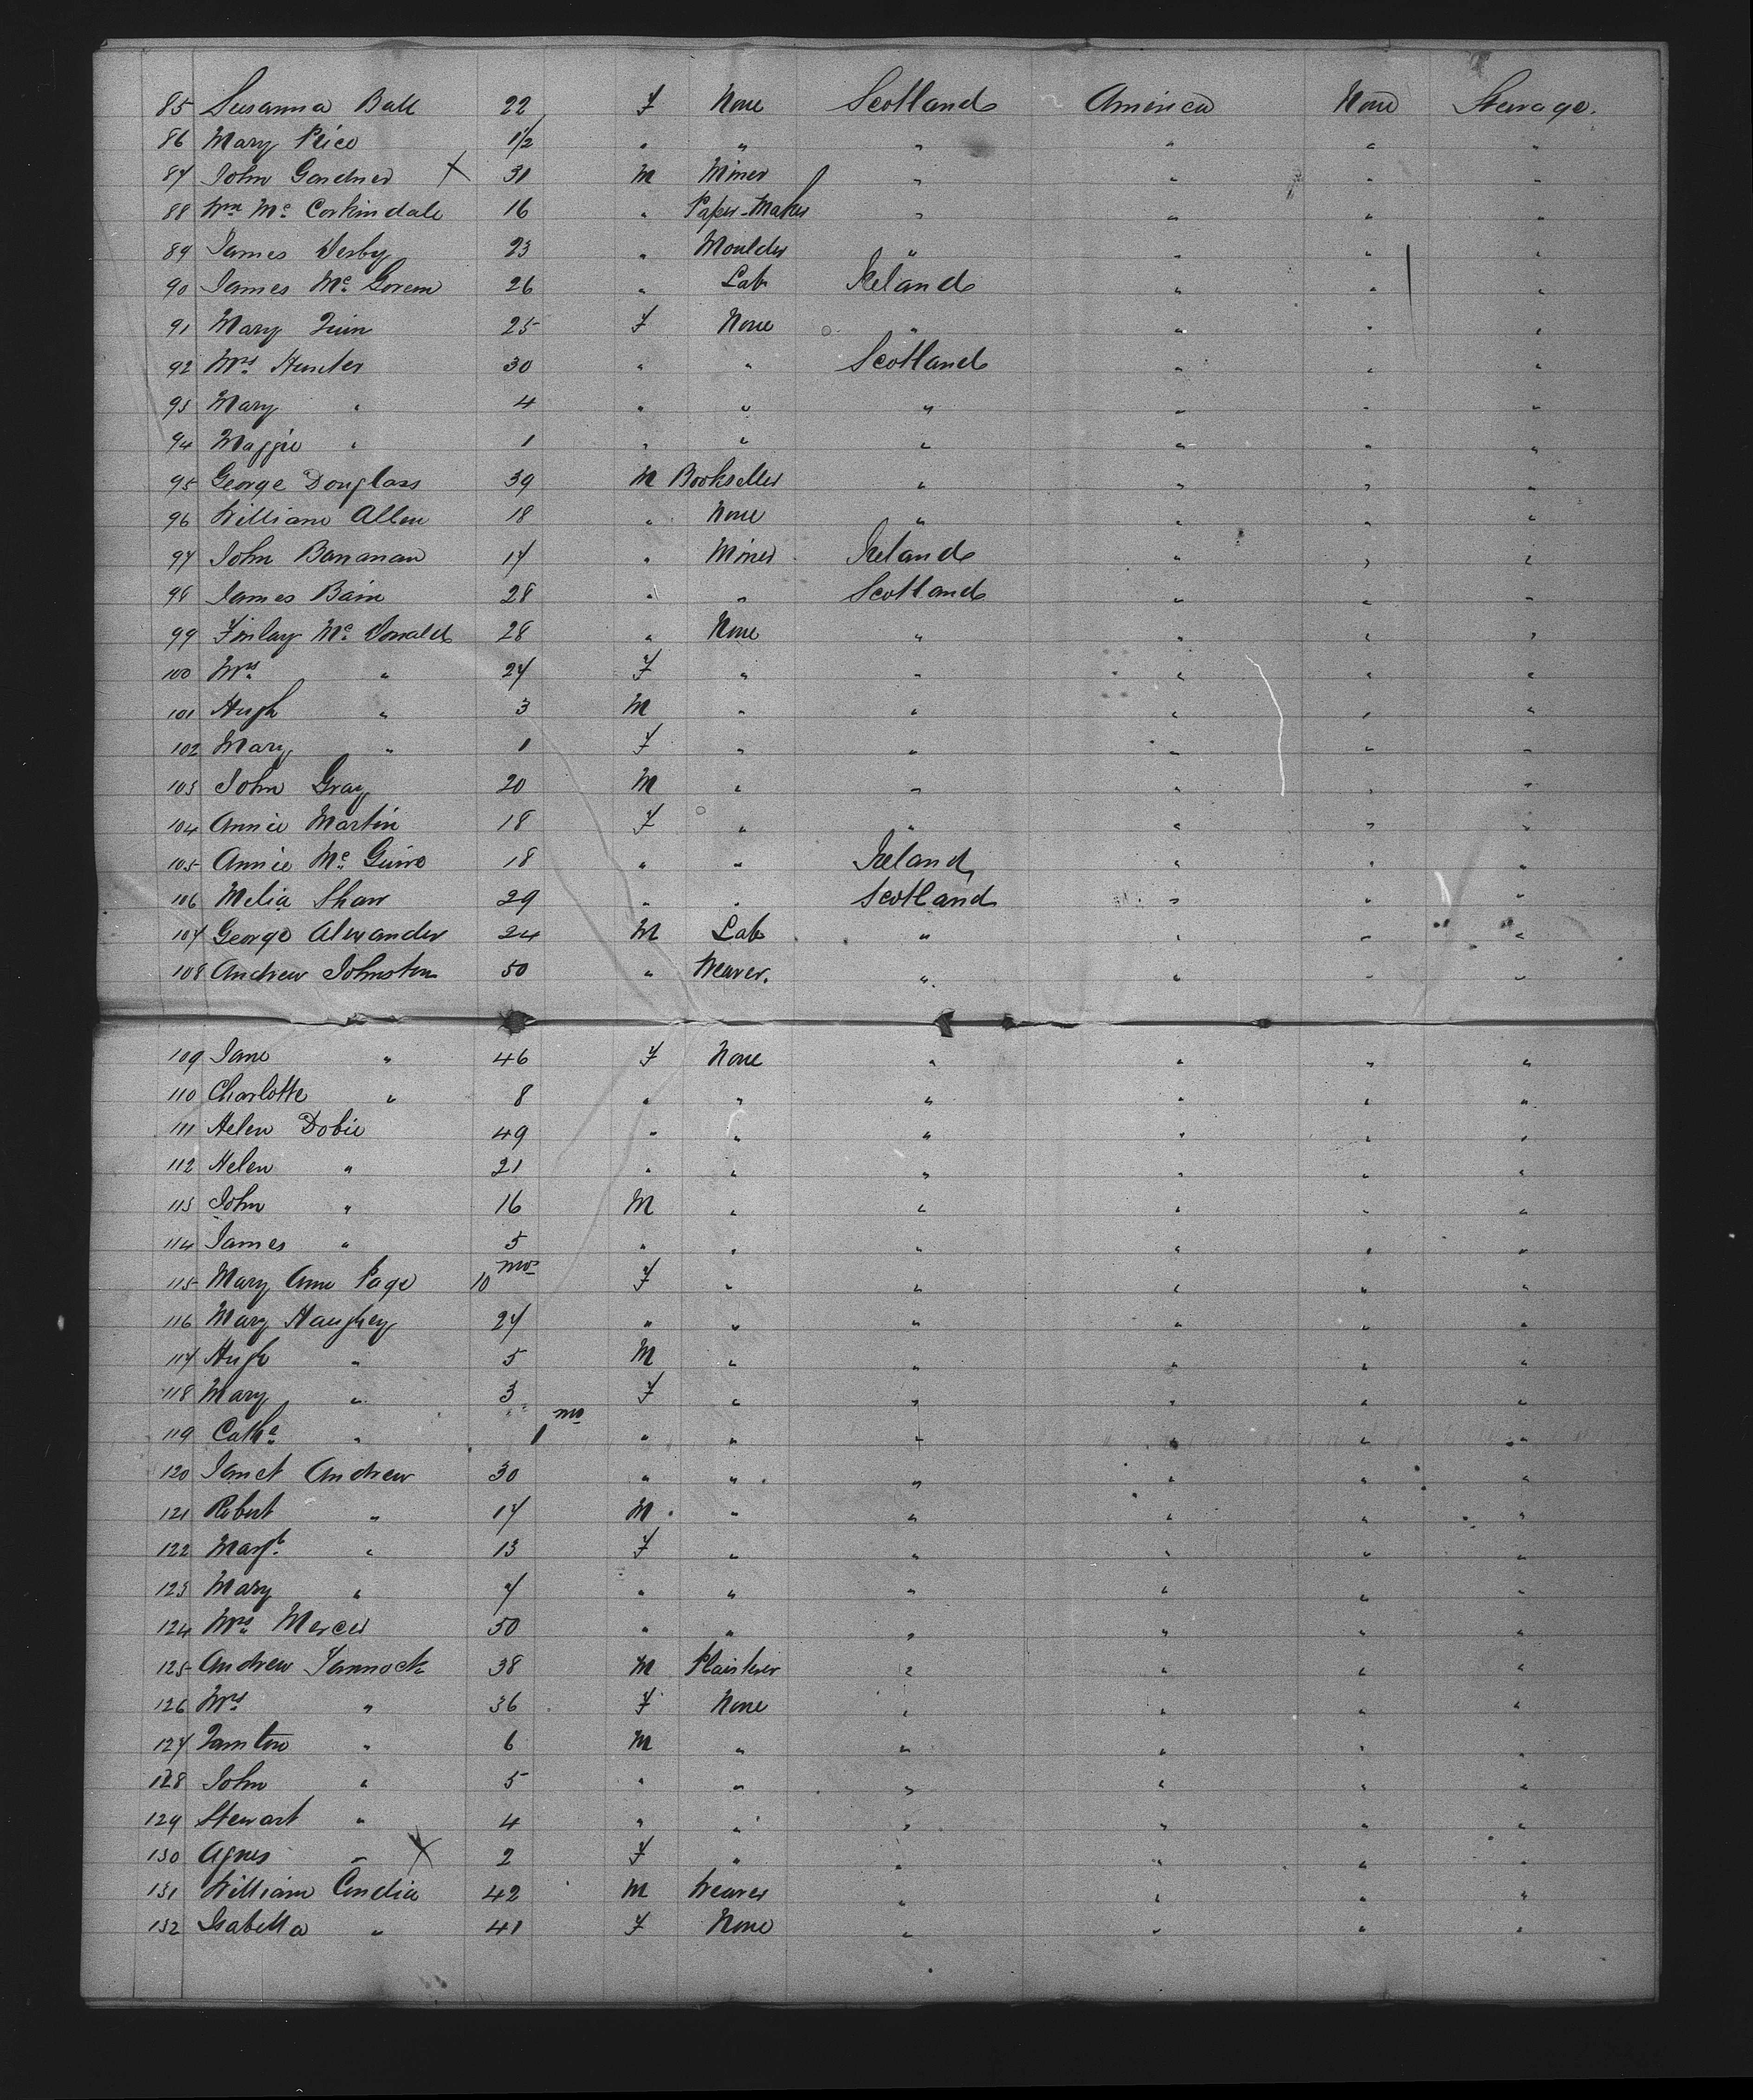 85 Susanna Ball 22 F None Scotland America None Steerage.
86 Mary Price 1 1/2 " " " " " "
87 John Gardner X 31 M Miner " " " "
88 Wm Mc Corkindale 16 " Paper-Maker " " " "
89 James Derby 23 " Moulder " " " "
90 James Mc 26 " Lab Ireland " " "
91 Mary Quin 25 F None " " " "
92 Mrs Hunter 30 " " Scotland " " "
93 Mary " 4 " " " " " "
94 Maggie " 1 " " " " " "
95 George Douglass 39 M Bookseller " " " "
96 William Allen 18 " None " " " "
97 John Bannanan 17 " Miner Ireland " " "
98 James Bain 28 " " Scotland " " "
99 Finlay Mc Donald 28 " None " " " "
100 Mrs " 27 F " " " " "
101 Hugh " 3 M " " " " "
102 Mary " 1 F " " " " "
103 John Gray 20 M " " " " "
104 Annie Martin 18 F " " " " "
105 Annie Mc 18 " " Ireland " " "
106 Melia Shaw 29 " " Scotland " " "
107 George Alexander 24 M Lab " " " "
108 Andrew Johnston 50 " Weaver. " " " "
109 Jane " 46 F None " " " "
110 Charlotte " 8 " " " " " "
111 Helen Dobie 49 " " " " " "
112 Helen " 21 " " " " " "
113 John " 16 M " " " " "
114 James " 5 " " " " " "
115 Mary Ann Page 10 mos F " " " " "
116 Mary Haughey 27 " " " " " "
117 Hugh " 5 M " " " " "
118 Mary " 3 F " " " " "
119 Cathe " 1 mo " " " " " "
120 Janet Andrew 30 " " " " " "
121 Robert " 17 M " " " " "
122 Margt " 13 F " " " " "
123 Mary " 7 " " " " " "
124 Mrs Mercer 50 " " " " " "
125 Andrew 38 M Plaisterer " " " "
126 Mrs " 36 F None " " " "
127 " 6 M " " " " "
128 John " 5 " " " " " "
129 Stewart " 4 " " " " " "
130 Agnes " X 2 F " " " " "
131 William Condia 42 M Weaver " " " "
132 Isabella " 41 F None " " " "